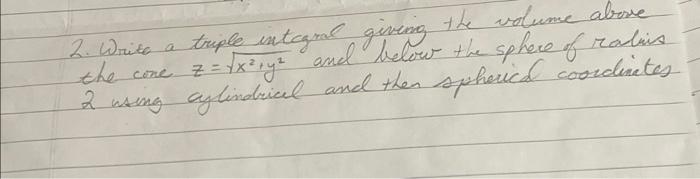 2. Write a triple integral giving the volume above
the cone z = √x²+y² and below the sphere of radius
2 using cylindrical and then spherical coordinates